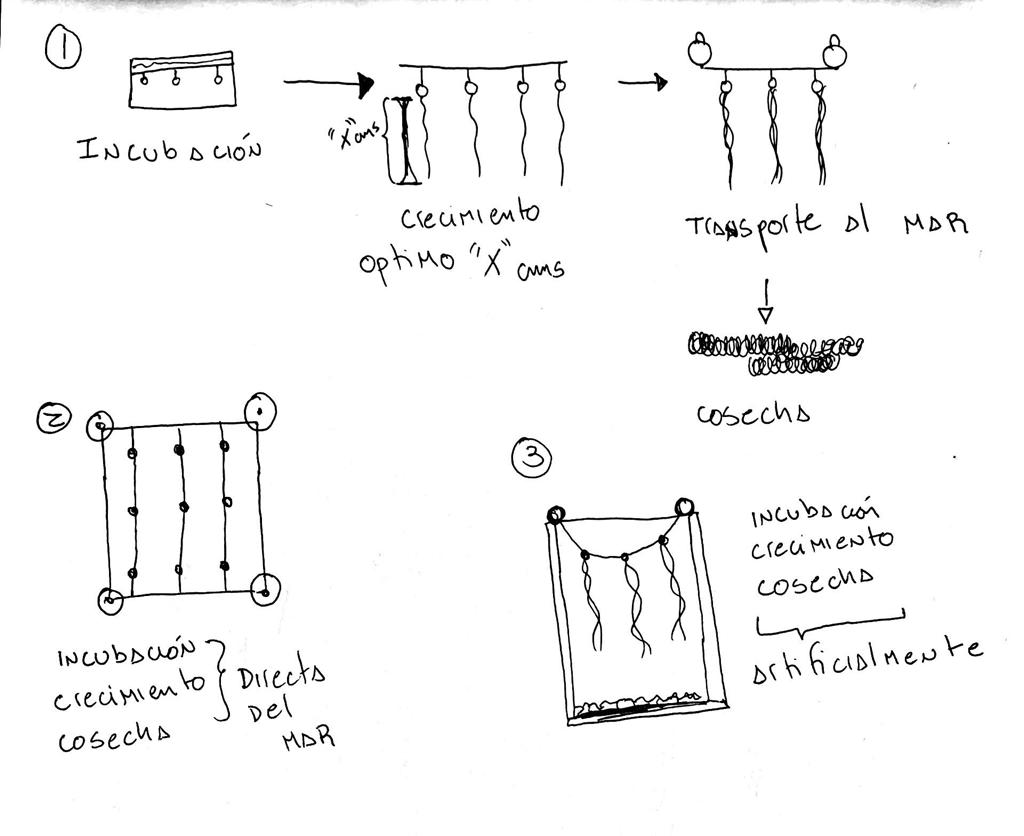 1
INCUBACIÓN
"X" cms
crecimiento
optimo "X" cms
TRANSporte al MAR
cosecha
2
INCUBACIÓN
crecimiento
cosecha
Directa
Del
MAR
3
INCUBACIÓN
crecimiento
cosecha
artificialmente